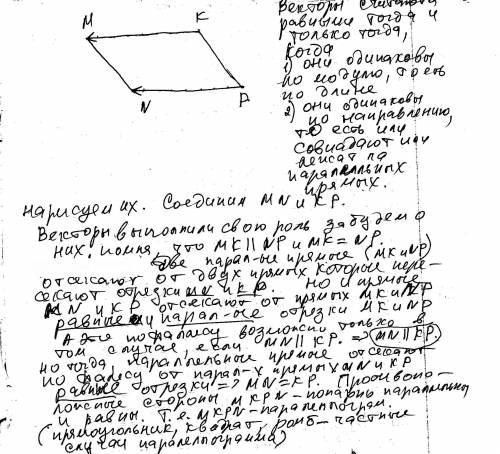 Векторы считаются
равными тогда и
только тогда,
когда
1) они одинаковы
по модулю, то есть
по длине
2) они одинаковы
по направлению,
то есть или
совпадают или
лежат на
параллельных
прямых.
M
K
N
P
нарисуем их. Соединим MN и KP.
Векторы выполнили свою роль забудем о
них. помня, что MK || NP и MK = NP.
Две парал-ые прямые (MK и NP)
отсекают от двух прямых которые пере-
секают отрезки MN и KP. но и прямые
MN и KP отсекают от прямых MK и NP
равные и парал-ые отрезки MK и NP
А это по фалесу возможно только в
том случае, если MN || KP. => MN || KP.
но тогда параллельные прямые отсекают
по фалесу от парал-х прямых MN и KP
равные отрезки => MN = KP. Противопо-
ложные стороны MKPN - попарно параллельны
и равны. Т.е. MKPN - параллелограм.
(прямоугольник, квадрат, ромб - частные
случаи паралелограмма)